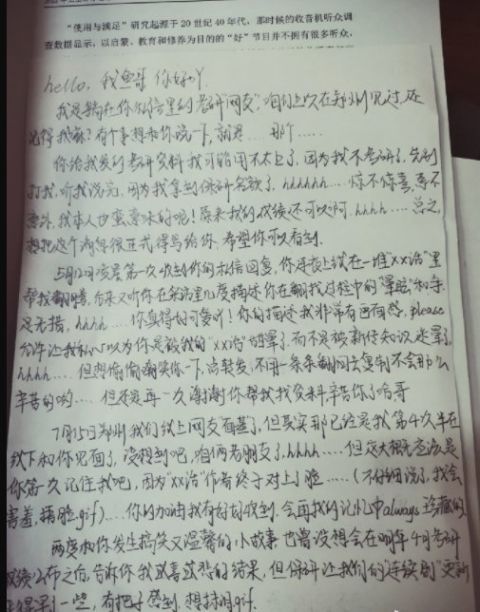 "使用与满足"研究起源于20世纪40年代,那时候的收音机听众调
查数据显示,以启蒙、教育和修养为目的的"好"节目并不拥有很多听众,
hello, 我鱼哥 你好吖
我是躺在你私信里的考研"网友",咱们上次在郑州见过,还
记得我嘛?有个事想和你说一下,就是……那个……
你给我发的考研资料我可能用不太上了,因为我不考研了,先别
打我,听我说完,因为我拿到保研名额了,hhhhhh……惊不惊喜,意不
意外,我本人也蛮意外的呢!原来我的成绩还可以啊,hhhh……总之,
想把这个消息很正式得写给你,希望你可以看到.
5月12日凌晨第一次收到你的私信回复,你连夜上线在一堆"xx语"里
帮我翻,后来又听你在里几度描述你在翻找过程中的"晕"和手
足无措,hhhh……你真得好可爱吖!你的描述我非常有画面感,please
允许让我私心以为你是被我的"xx语"晕了,而不是被新传知识迷晕了.
hhhh……但想偷偷嘲笑你一下,点转发,不用一条条翻回去复制不会那么
辛苦的哟……但还是再一次谢谢你帮我找资料,辛苦你了哈哥
7月15日郑州我们线上网友面基了,但其实那已经是我第4次坐在
线下和你见面了,没想到吧,咱俩老朋友了,hhhh……但这大概应该是
你第一次记住我吧,因为"xx语"作者终于对上了脸……(不仔细说了,我会
害羞,捂脸.gif)……你的加油我有好好收到,会再我的记忆中always珍藏的.
两度和你发生搞笑又温馨的小故事 也曾设想会在明年4月考研
成绩公布之后,告诉你我或喜或悲的结果,但保研让我们的"连续剧"更新
得早了一些,有把你感到,想